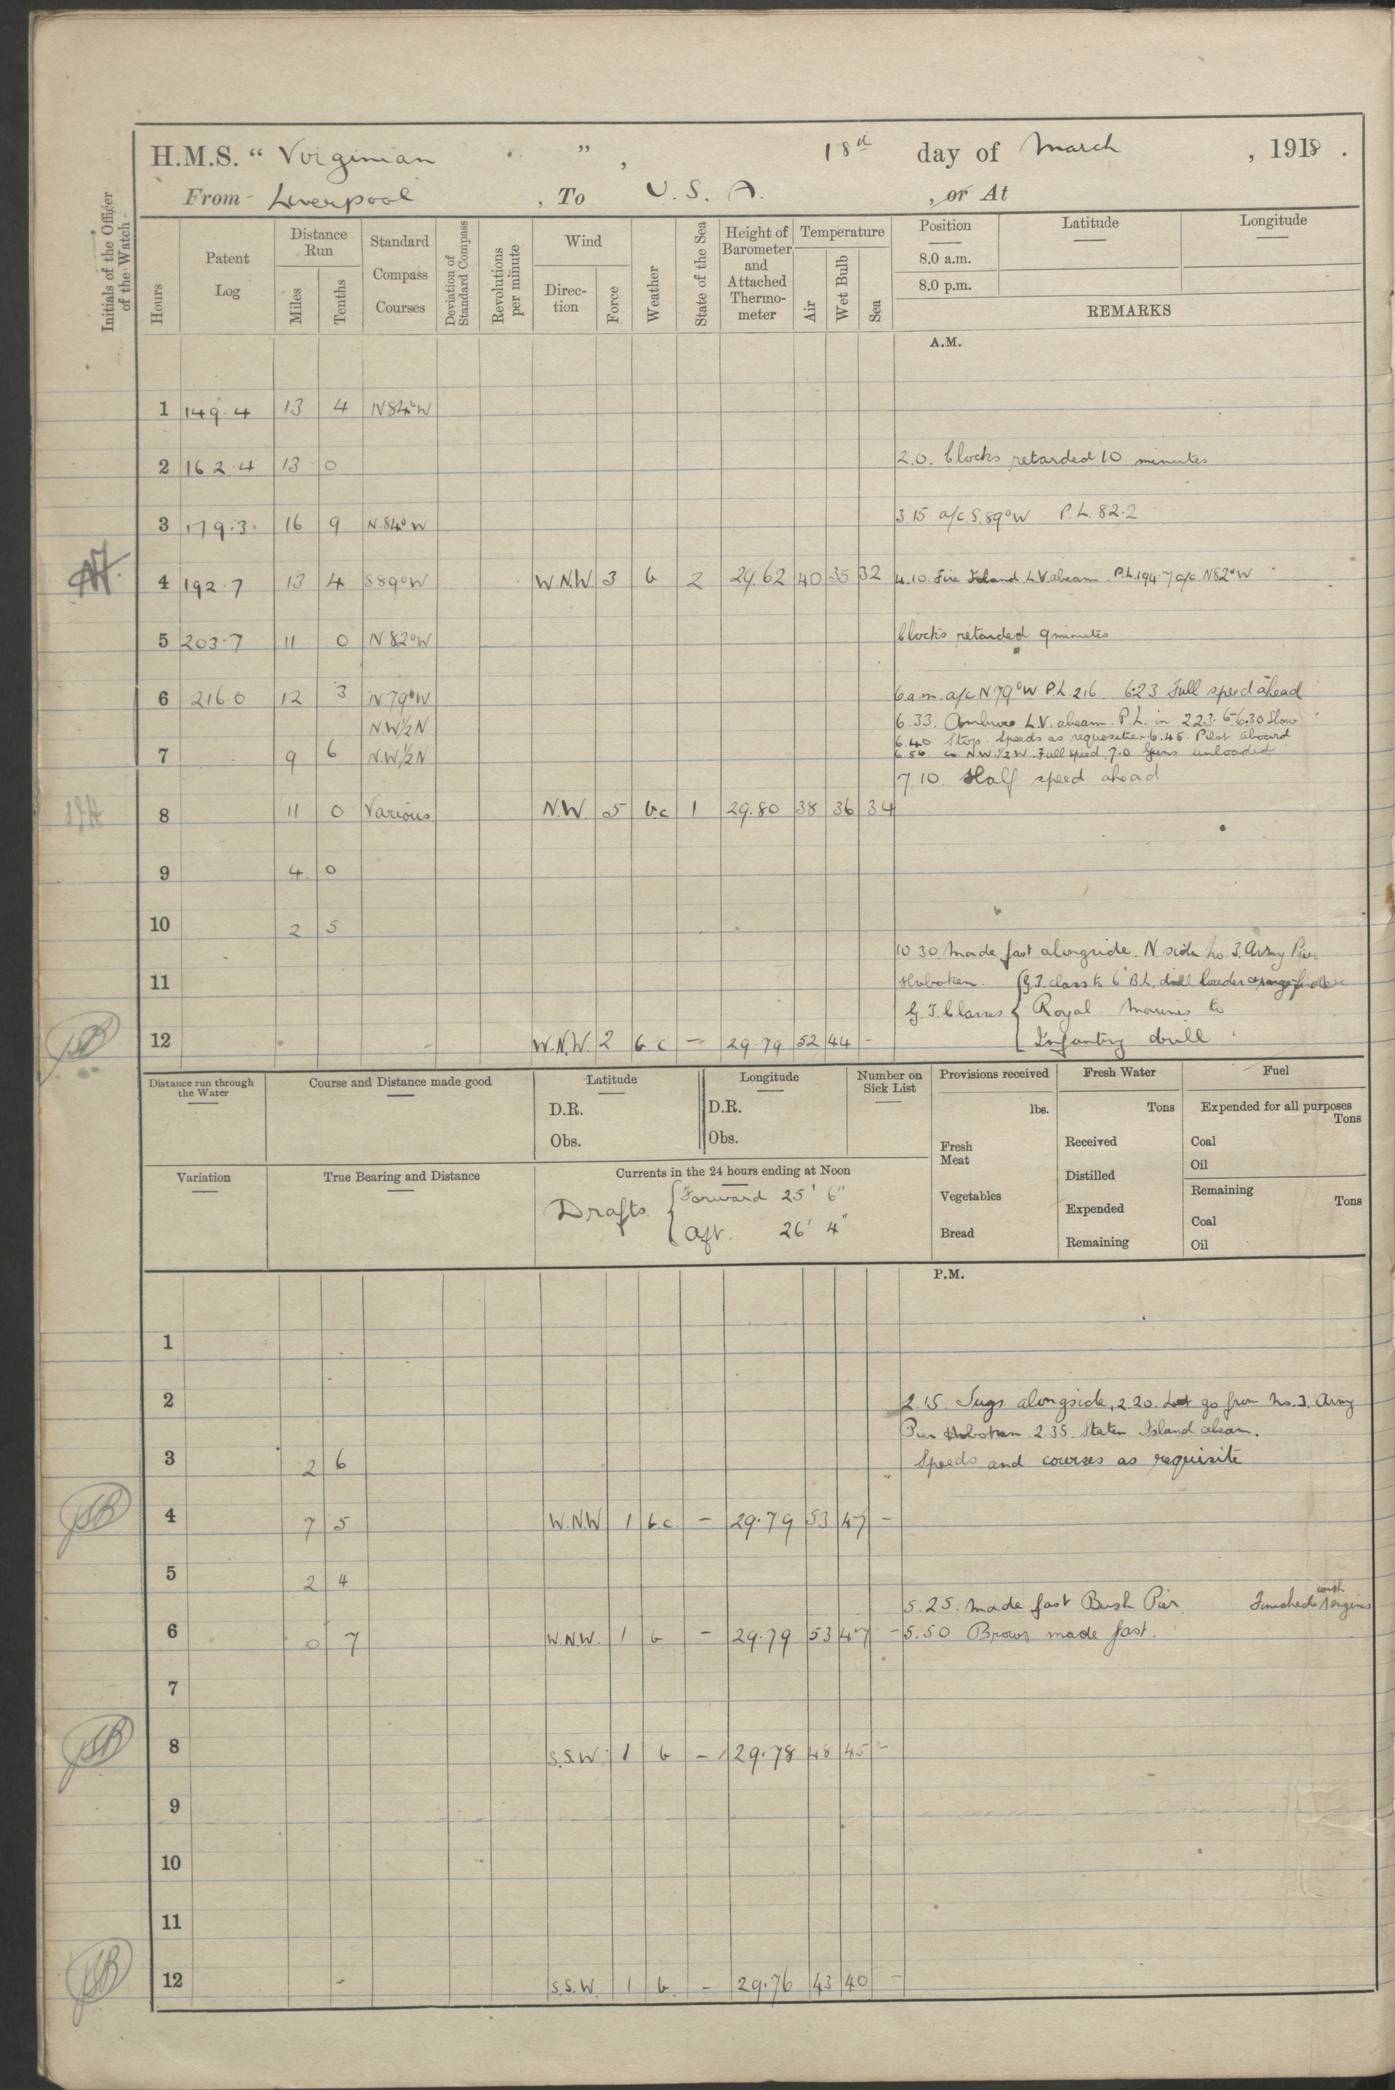 H.M.S. “ Virginian ” , 18th day of March , 1918 .
From Liverpool , To U.S.A. , or At
Initials of the Officer of the Watch
Hours
Patent Log
Distance Run
Miles
Tenths
Standard Compass Courses
Deviation of Standard Compass
Revolutions per minute
Wind
Direction
Force
Weather
State of the Sea
Height of Barometer and Attached Thermometer
Temperature
Air
Wet Bulb
Sea
Position
8.0 a.m.
8.0 p.m.
Latitude
Longitude
REMARKS
A.M.
1 149.4 13 4 N84°W
2 162.4 13 0 2.0. Clocks retarded 10 minutes
3 179.3 16 9 N.84°W 3.15 a/c S.89°W P.L. 82.2
4 192.7 13 4 S89°W W.N.W. 3 b 2 29.62 40 35 32 4.10. Fire Island L.V. abeam. P.L. 194.7 a/c N82°W
5 203.7 11 0 N82°W Clocks retarded 9 minutes
6 216.0 12 3 N79°W 6 a.m. a/c N79°W P.L. 216. 6.23 Full speed ahead
N.W½N 6.33. L.V. abeam. P.L. in 223.5 6.30 Slow
6.40 Stop. Speeds as requisite. 6.45. Pilot aboard
7 9 6 N.W½N 6.56 N.W.½W. Full speed. 7.0 Guns unloaded
7.10. Half speed ahead
8 11 0 Various N.W. 5 bc 1 29.80 38 36 34
9 4 0
10 2 5
10.30. Made fast alongside. N side No. 3. Army Pier
11 Hoboken. G.T. class to 6" B.L. drill loader
G.T. Classes Royal Marines to
12 W.N.W. 2 b.c — 29.79 52 44 - Infantry drill
Distance run through the Water
Course and Distance made good
Latitude
D.R.
Obs.
Longitude
D.R.
Obs.
Number on Sick List
Provisions received
lbs.
Fresh Meat
Vegetables
Bread
Fresh Water
Tons
Received
Distilled
Expended
Remaining
Fuel
Expended for all purposes
Tons
Coal
Oil
Remaining
Tons
Coal
Oil
Variation
True Bearing and Distance
Currents in the 24 hours ending at Noon
Drafts. Forward 25' 6"
Aft. 26' 4"
P.M.
1
2 2.15. Tugs alongside, 2.20. Let go from No. 3. Army
Pier Hoboken. 2.35. Staten Island abeam.
3 2 6 Speeds and courses as requisite
4 7 5 W.N.W 1 b.c. — 29.79 53 47 -
5 2 4
5.25. Made fast Bush Pier. Finished with Engines
6 0 7 W.N.W. 1 b — 29.79 53 47 - 5.50 Brows made fast.
7
8 S.S.W. 1 b — 29.78 48 45 -
9
10
11
12 S.S.W. 1 b. — 29.76 43 40 -